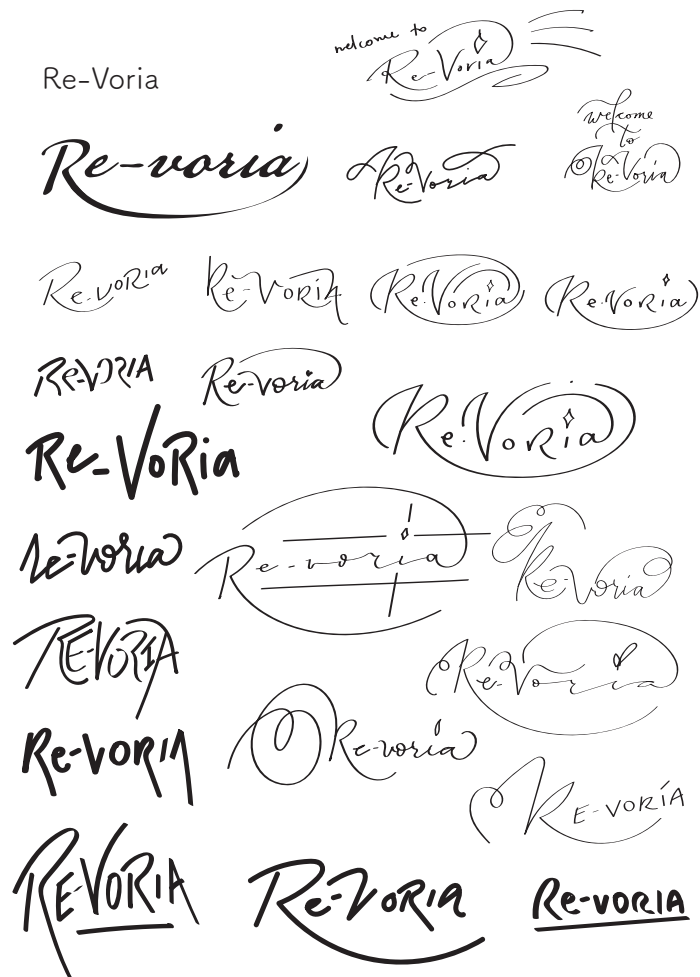 welcome to
Re-Voria
Re-Voria
welcome
to
Re-Voria
Re-voria
Re-Voria
Re-VORIa
Re-VORIA
Re-VoRia
Re-VoRia
ReVORIA
Re-voria
Re-VoRia
Re-VoRia
Re-voria
Re-voria
Re-Voria
REVORIA
Re-Voria
Re-VORIA
Re-voria
RE-VORÍA
REVORIA
Re-VORIa
Re-VORIA